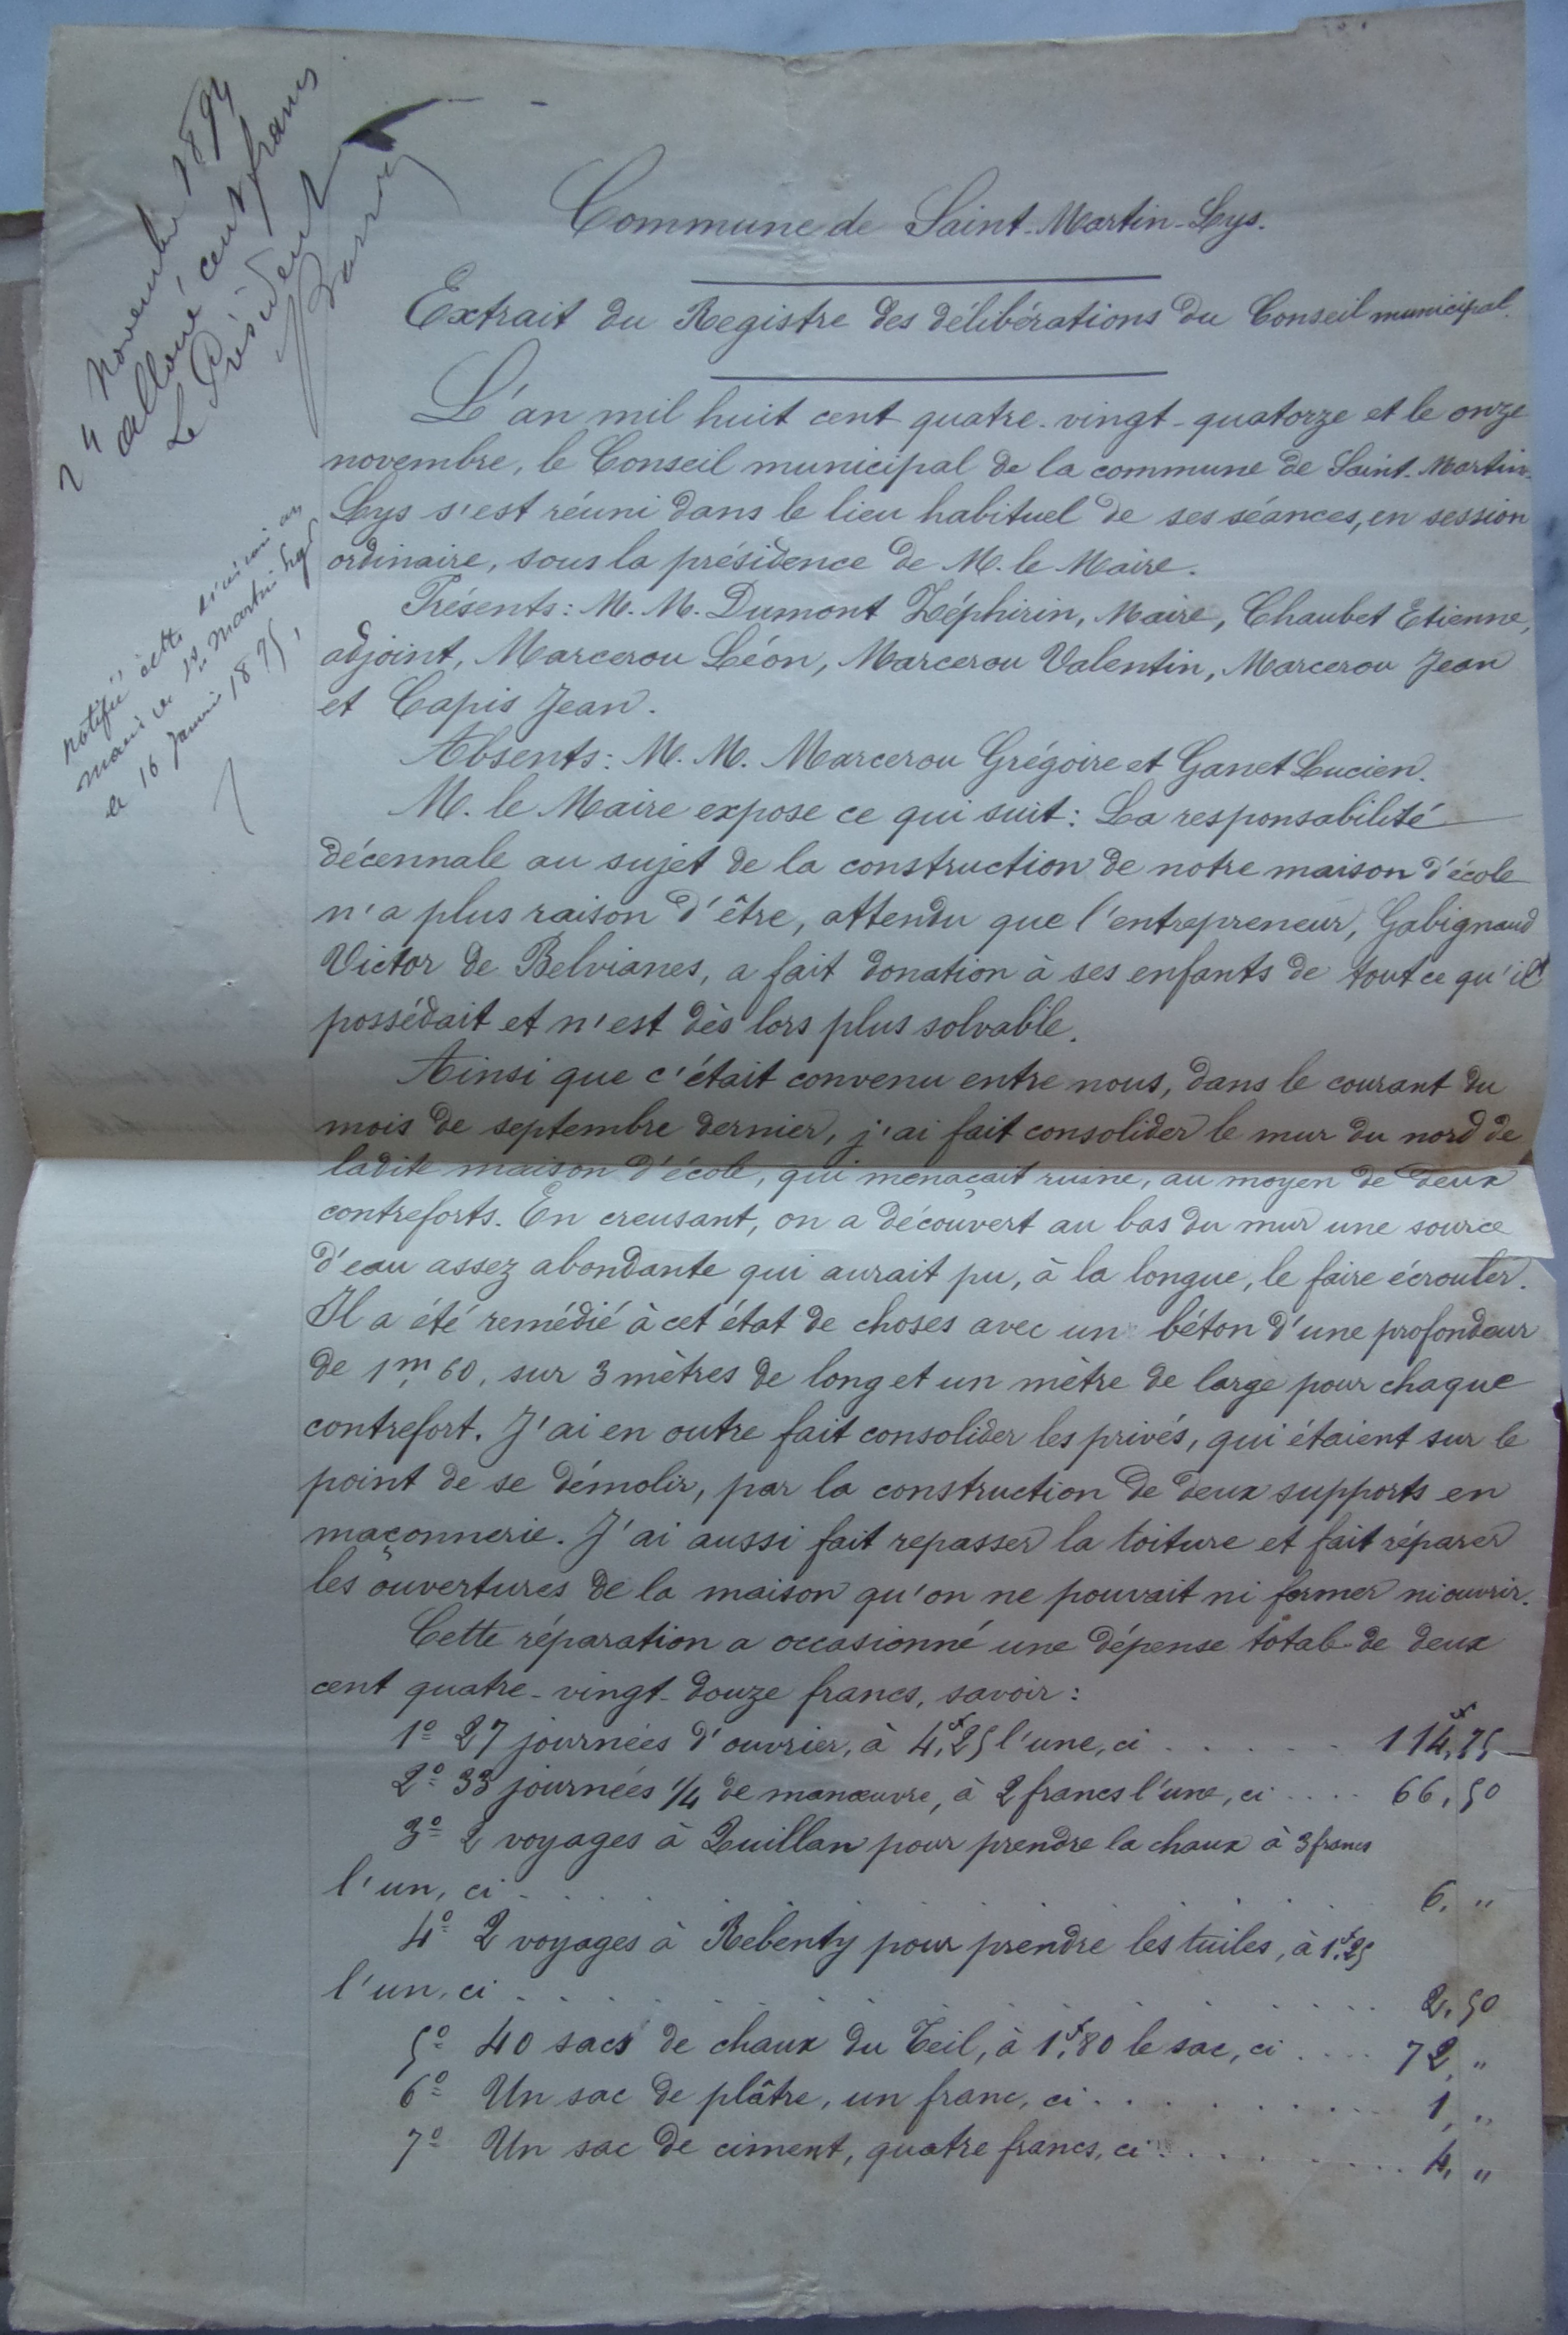 24 novembre 1894
alloué cent francs
Le Président
notifié cette décision au
maire de St Martin Lys
le 16 Janvier 1895,
Commune de Saint-Martin-Lys.
Extrait du Registre des délibérations du Conseil municipal.
L'an mil huit cent quatre-vingt-quatorze et le onze
novembre, le Conseil municipal de la commune de Saint-Martin-
Lys s'est réuni dans le lieu habituel de ses séances, en session
ordinaire, sous la présidence de M. le Maire.
Présents: M. M. Dumont Zéphirin, Maire, Chaubet Etienne,
adjoint, Marcerou Léon, Marcerou Valentin, Marcerou Jean
et Capis Jean.
Absents: M. M. Marcerou Grégoire et Ganet Lucien.
M. le Maire expose ce qui suit: La responsabilité
décennale au sujet de la construction de notre maison d'école
n'a plus raison d'être, attendu que l'entrepreneur, Gabignaud
Victor de Belvianes, a fait donation à ses enfants de tout ce qu'il
possédait et n'est dès lors plus solvable.
Ainsi que c'était convenu entre nous, dans le courant du
mois de septembre dernier, j'ai fait consolider le mur du nord de
ladite maison d'école, qui menaçait ruine, au moyen de deux
contreforts. En creusant, on a découvert au bas du mur une source
d'eau assez abondante qui aurait pu, à la longue, le faire écrouler.
Il a été remédié à cet état de choses avec un béton d'une profondeur
de 1m,60, sur 3 mètres de long et un mètre de large pour chaque
contrefort. J'ai en outre fait consolider les privés, qui étaient sur le
point de se démolir, par la construction de deux supports en
maçonnerie. J'ai aussi fait repasser la toiture et fait réparer
les ouvertures de la maison qu'on ne pouvait ni fermer ni ouvrir.
Cette réparation a occasionné une dépense totale de deux
cent quatre-vingt-douze francs, savoir:
1º 27 journées d'ouvrier, à 4f,25 l'une, ci . . . . . 114f,75
2º 33 journées 1/4 de manœuvre, à 2 francs l'une, ci . . . . 66,50
3º 2 voyages à Quillan pour prendre la chaux à 3 francs
l'un, ci . . . . . 6, "
4º 2 voyages à Rebenty pour prendre les tuiles, à 1f,25
l'un, ci . . . . . 2,50
5º 40 sacs de chaux du Teil, à 1f,80 le sac, ci . . . . 72, "
6º Un sac de plâtre, un franc, ci . . . . . 1, "
7º Un sac de ciment, quatre francs, ci . . . . . 4, "